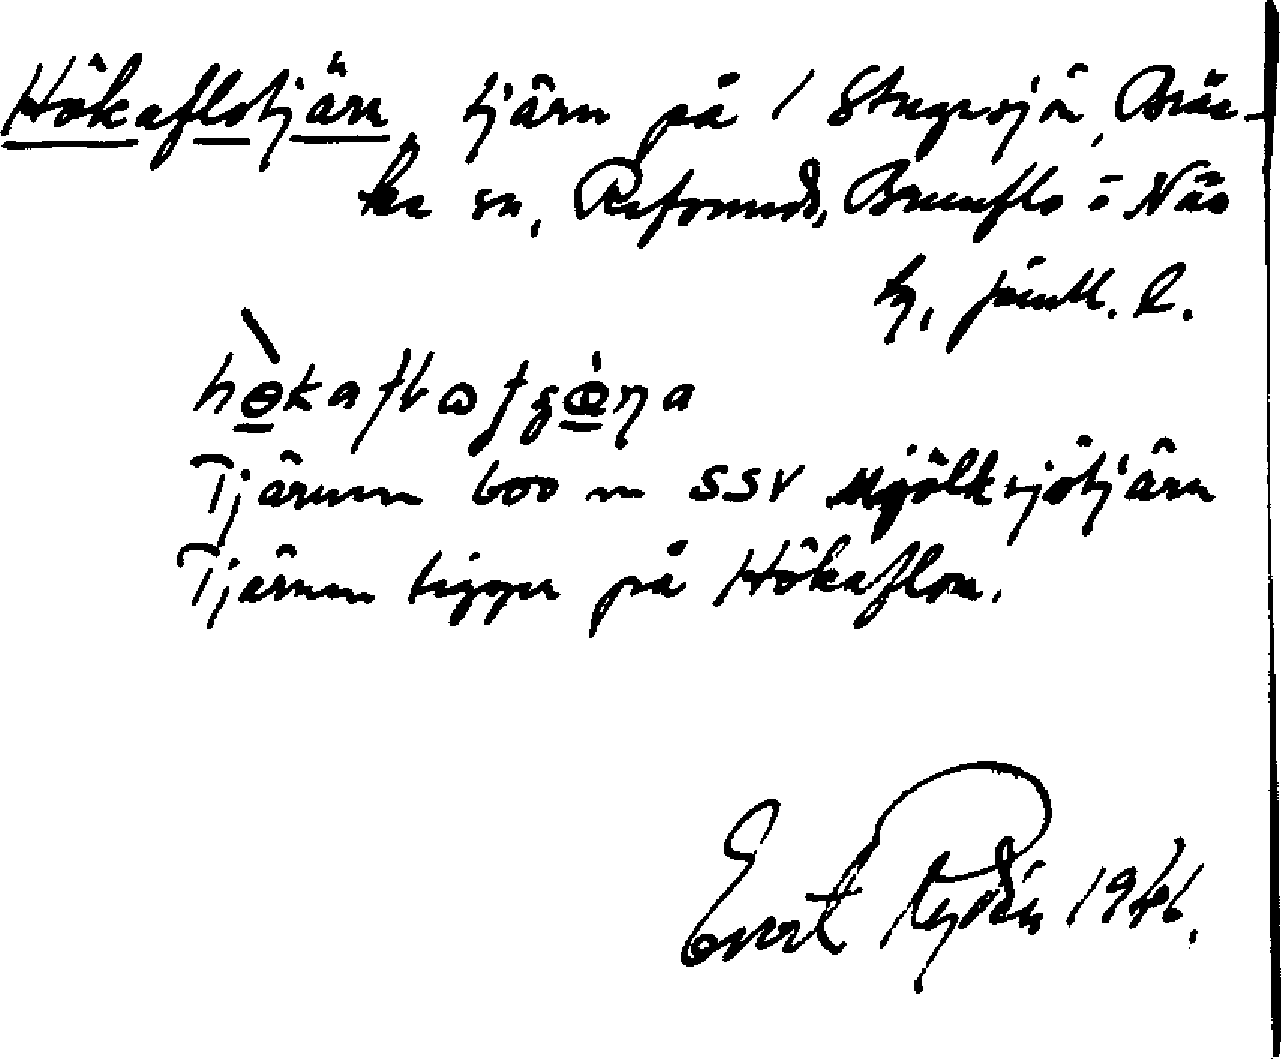 Hökaflotjärn, tjärn på 1 Stugusjö, Bräc-
ke sn, Refsunds, Brunflo o Näs
tg, Jämtl. l.
hökaflotjärna
Tjärnen 600 m SSV Mjölksjötjärn
Tjärnen ligger på Hökaflon.
Evert Rydén 1946.